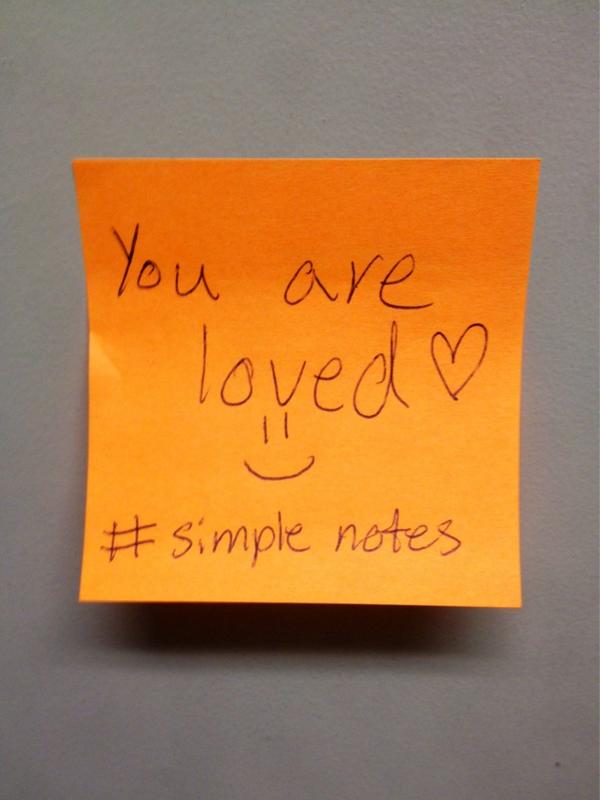 You are
loved ♡
# simple notes